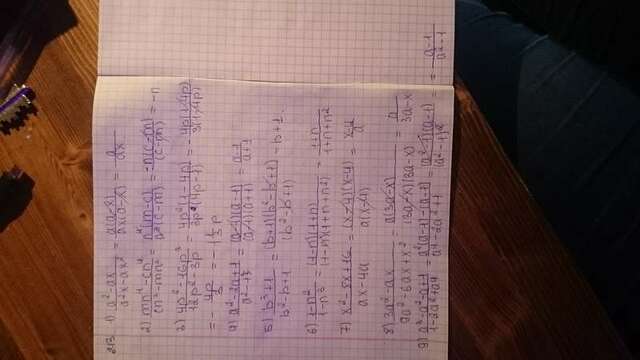 213. 1) (a²-ax)/(a²x-ax²) = a(a-x)/(ax(a-x)) = a/(ax)
2) (mn⁴-cn⁴)/(cn³-mn³) = n⁴(m-c)/(n³(c-m)) = -n(c-m)/(c-m) = -n
3) (4p²-16p³)/(12p²-3p) = 4p²(1-4p)/(3p(4p-1)) = -4p(1-4p)/(3(1-4p))
= -4p/3 = -1 1/3 p
4) (a²-2a+1)/(a²-1²) = (a-1)(a-1)/((a-1)(a+1)) = (a-1)/(a+1)
5) (b³+1)/(b²-b+1) = (b+1)(b²-b+1)/(b²-b+1) = b+1.
6) (1-n²)/(1-n³) = (1-n)(1+n)/((1-n)(1+n+n²)) = (1+n)/(1+n+n²)
7) (x²-8x+16)/(ax-4a) = (x-4)(x-4)/(a(x-4)) = (x-4)/a
8) (3a²-ax)/(9a²-6ax+x²) = a(3a-x)/((3a-x)(3a-x)) = a/(3a-x)
9) (a³-a²-a+1)/(1-2a²+a⁴) = (a²(a-1)-(a-1))/(a⁴-2a²+1) = (a²-1)(a-1)/(a²-1)² = = (a-1)/(a²-1)